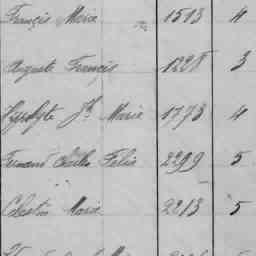 François Marie 1513 4
Auguste François 1228 3
Hyppolyte Jh Marie 1773 4
Fernand Charles Felix 2299 5
Célestin Marie 2213 5